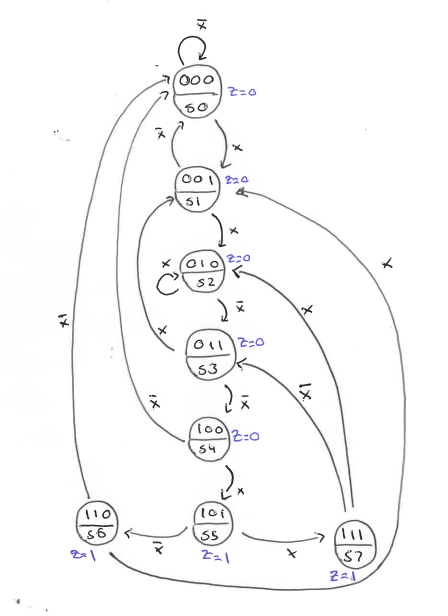 x̄
000
S0
Z=0
x̄
x
001
S1
Z=0
x
x
x
010
S2
Z=0
x̄
x
x̄
x
011
S3
Z=0
x̄
x̄
x̄
100
S4
Z=0
x
110
S6
Z=1
x̄
101
S5
Z=1
x
111
S7
Z=1